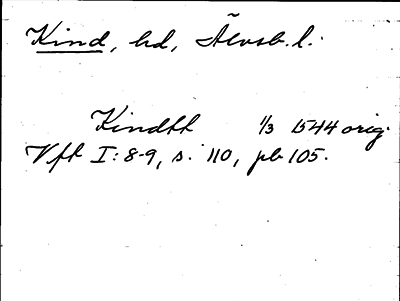 Kind, hd, Älvsb. l.
Kindh 1/3 1544 orig.
Vfh I: 8-9, s. 110, pb 105.